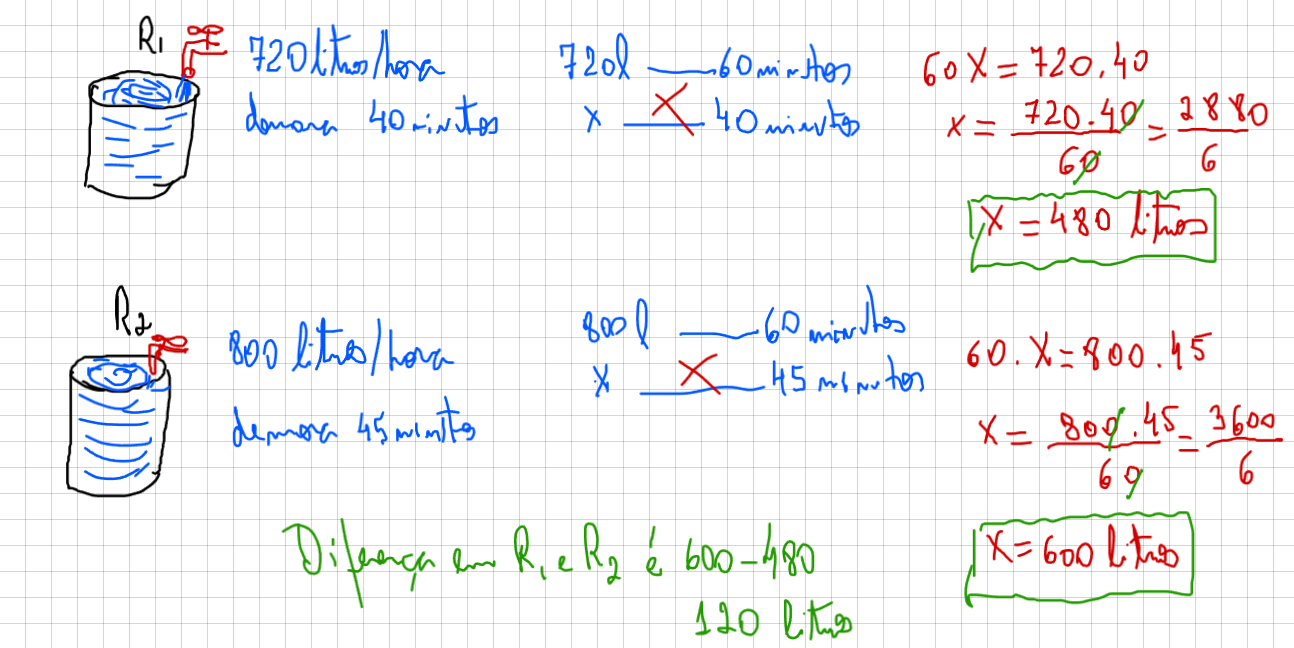 R1
720 litros/hora
demora 40 minutos
720l 60 minutos
x 40 minutos
60X = 720.40
x = 720.40/60 = 2880/6
X = 480 litros
R2
800 litros/hora
demora 45 minutos
800l 60 minutos
x 45 minutos
60.X = 800.45
X = 800.45/60 = 3600/6
X = 600 litros
Diferença em R1 e R2 é 600 - 480
120 litros